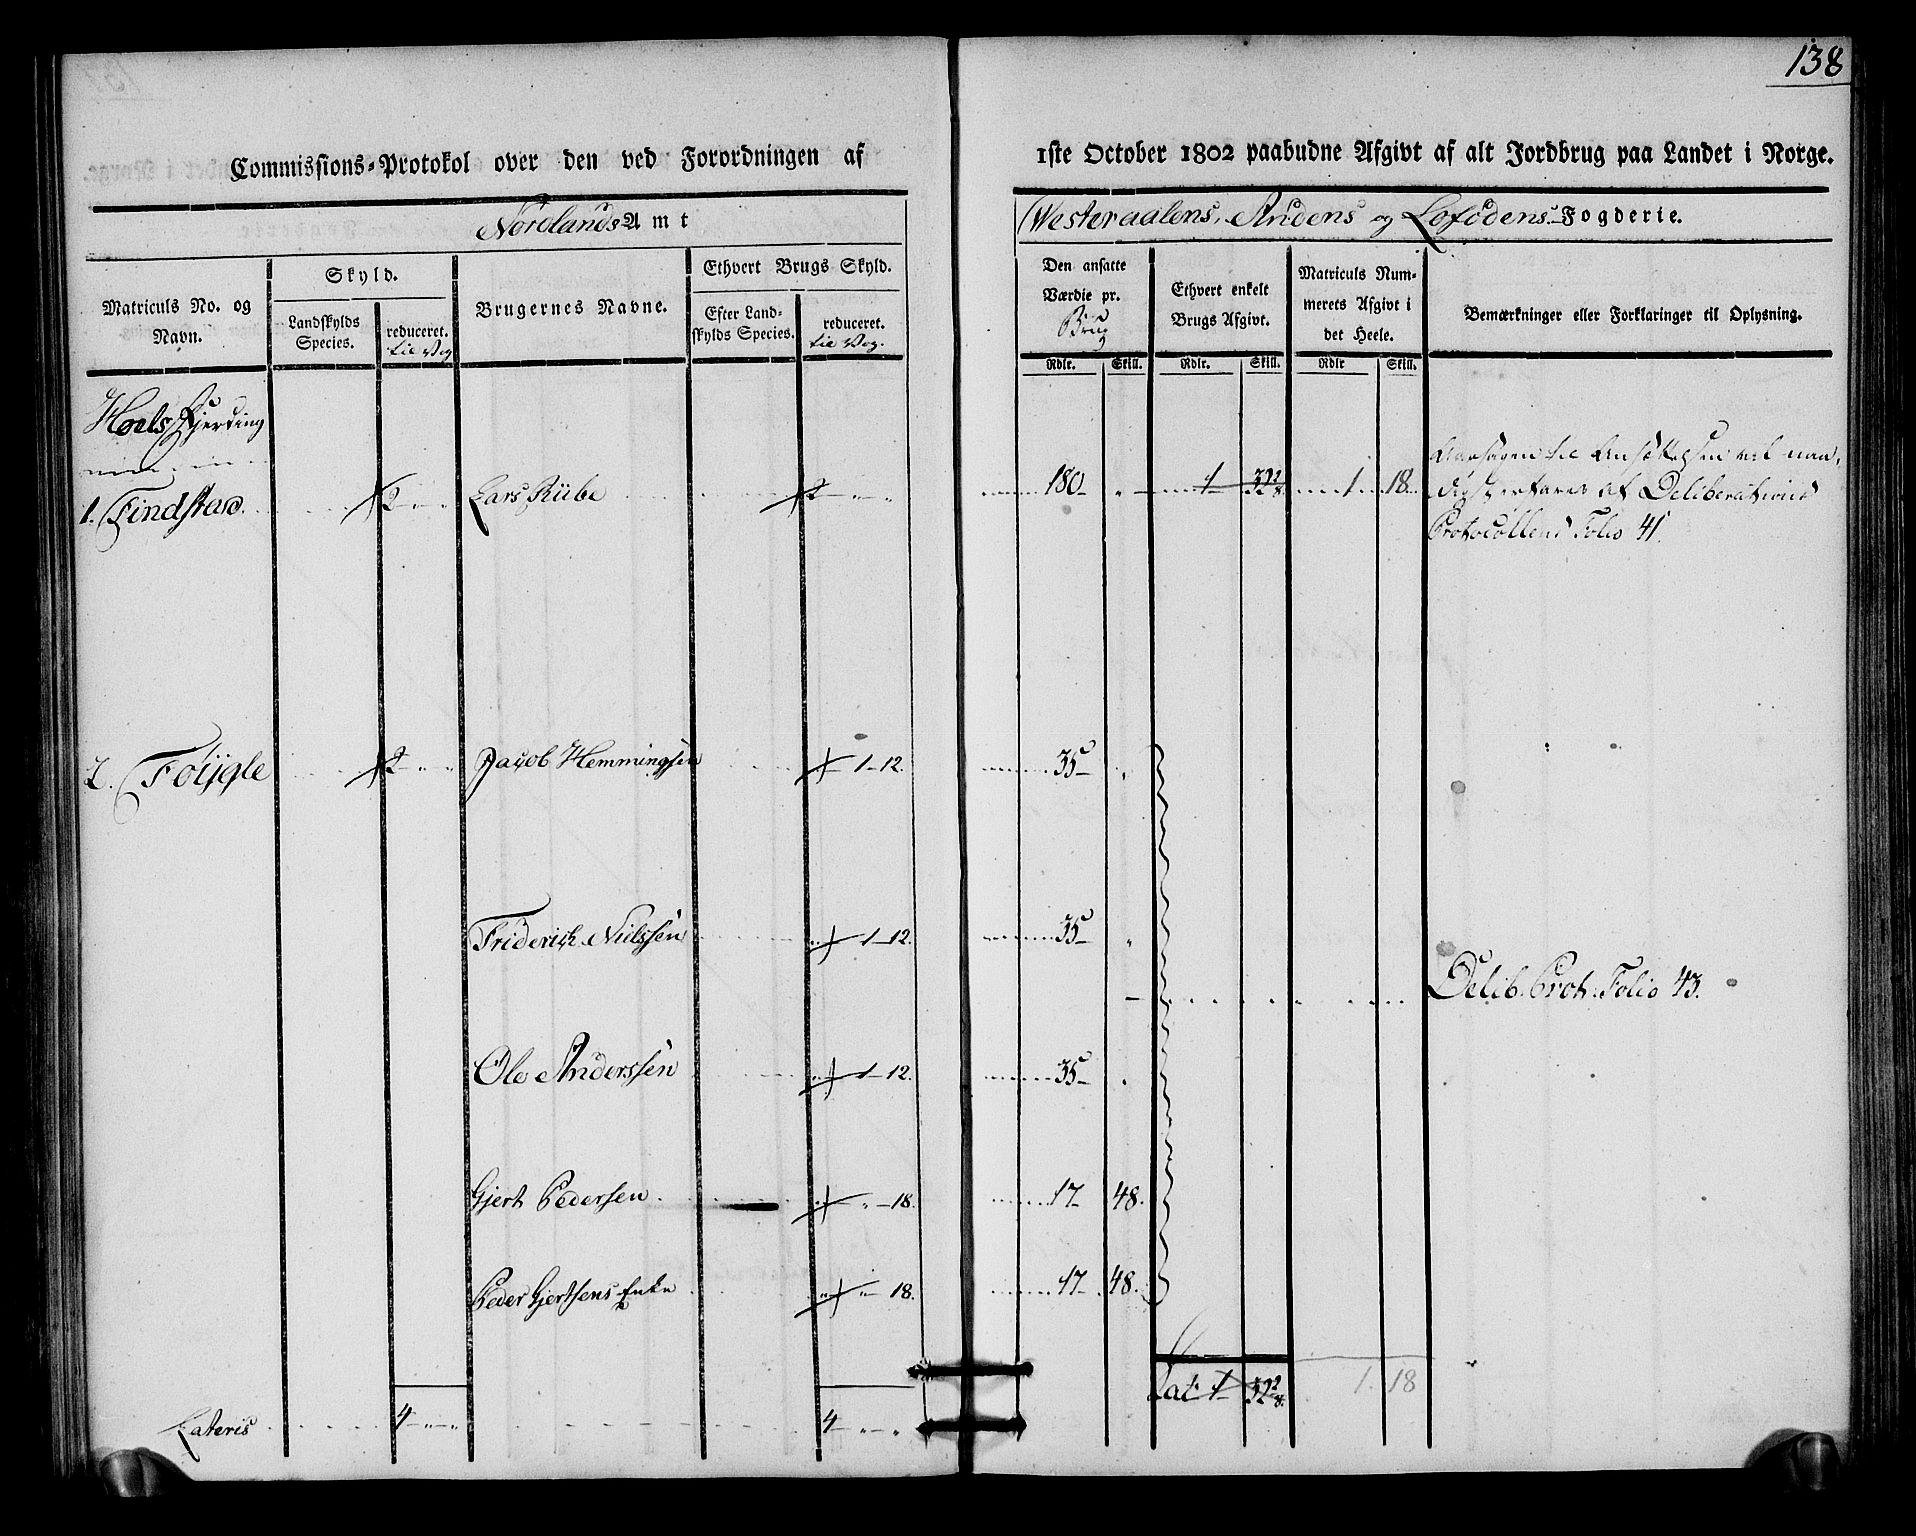 138
Commissions-Protokol over den ved Forordningen af
1ste October 1802 paabudne Afgivt af alt Jordbrug paa Landet i Norge.
Nordlands Amt
Westeraalens, Andens og Lofodens Fogderie.
Matriculs No. og Navn.
Skyld.
Landskylds Species.
reduceret. til Vog
Brugernes Navne.
Ethvert Brugs Skyld.
Efter Landskylds Species.
reduceret. til Vog.
Den ansatte Værdie pr. Brug
Rdlr. Skill.
Ethvert enkelt Brugs Afgivt.
Rdlr. Skill.
Matriculs Nummerets Afgivt i det Heele.
Rdlr Skill.
Bemærkninger eller Forklaringer til Oplysning.
Hoels Fjerding
1. Findstad 2 Lars Riibe 2 180 1 1 18
Aarsagen til Ansættelsen
af Deliberations
Protocollens Folio 41.
2. Föijgle 2 Jacob Hemmingsen 1-12. 35
Friderich Nielssen 1-12. 35
Delib. Prot: Folio 43.
Ole Anderssen 1-12. 35
Gjert Pedersen 18. 17 48.
Peder Gjertsens Enke 18. 17 48.
Lat: 1 1. 18
Lateris 4 4